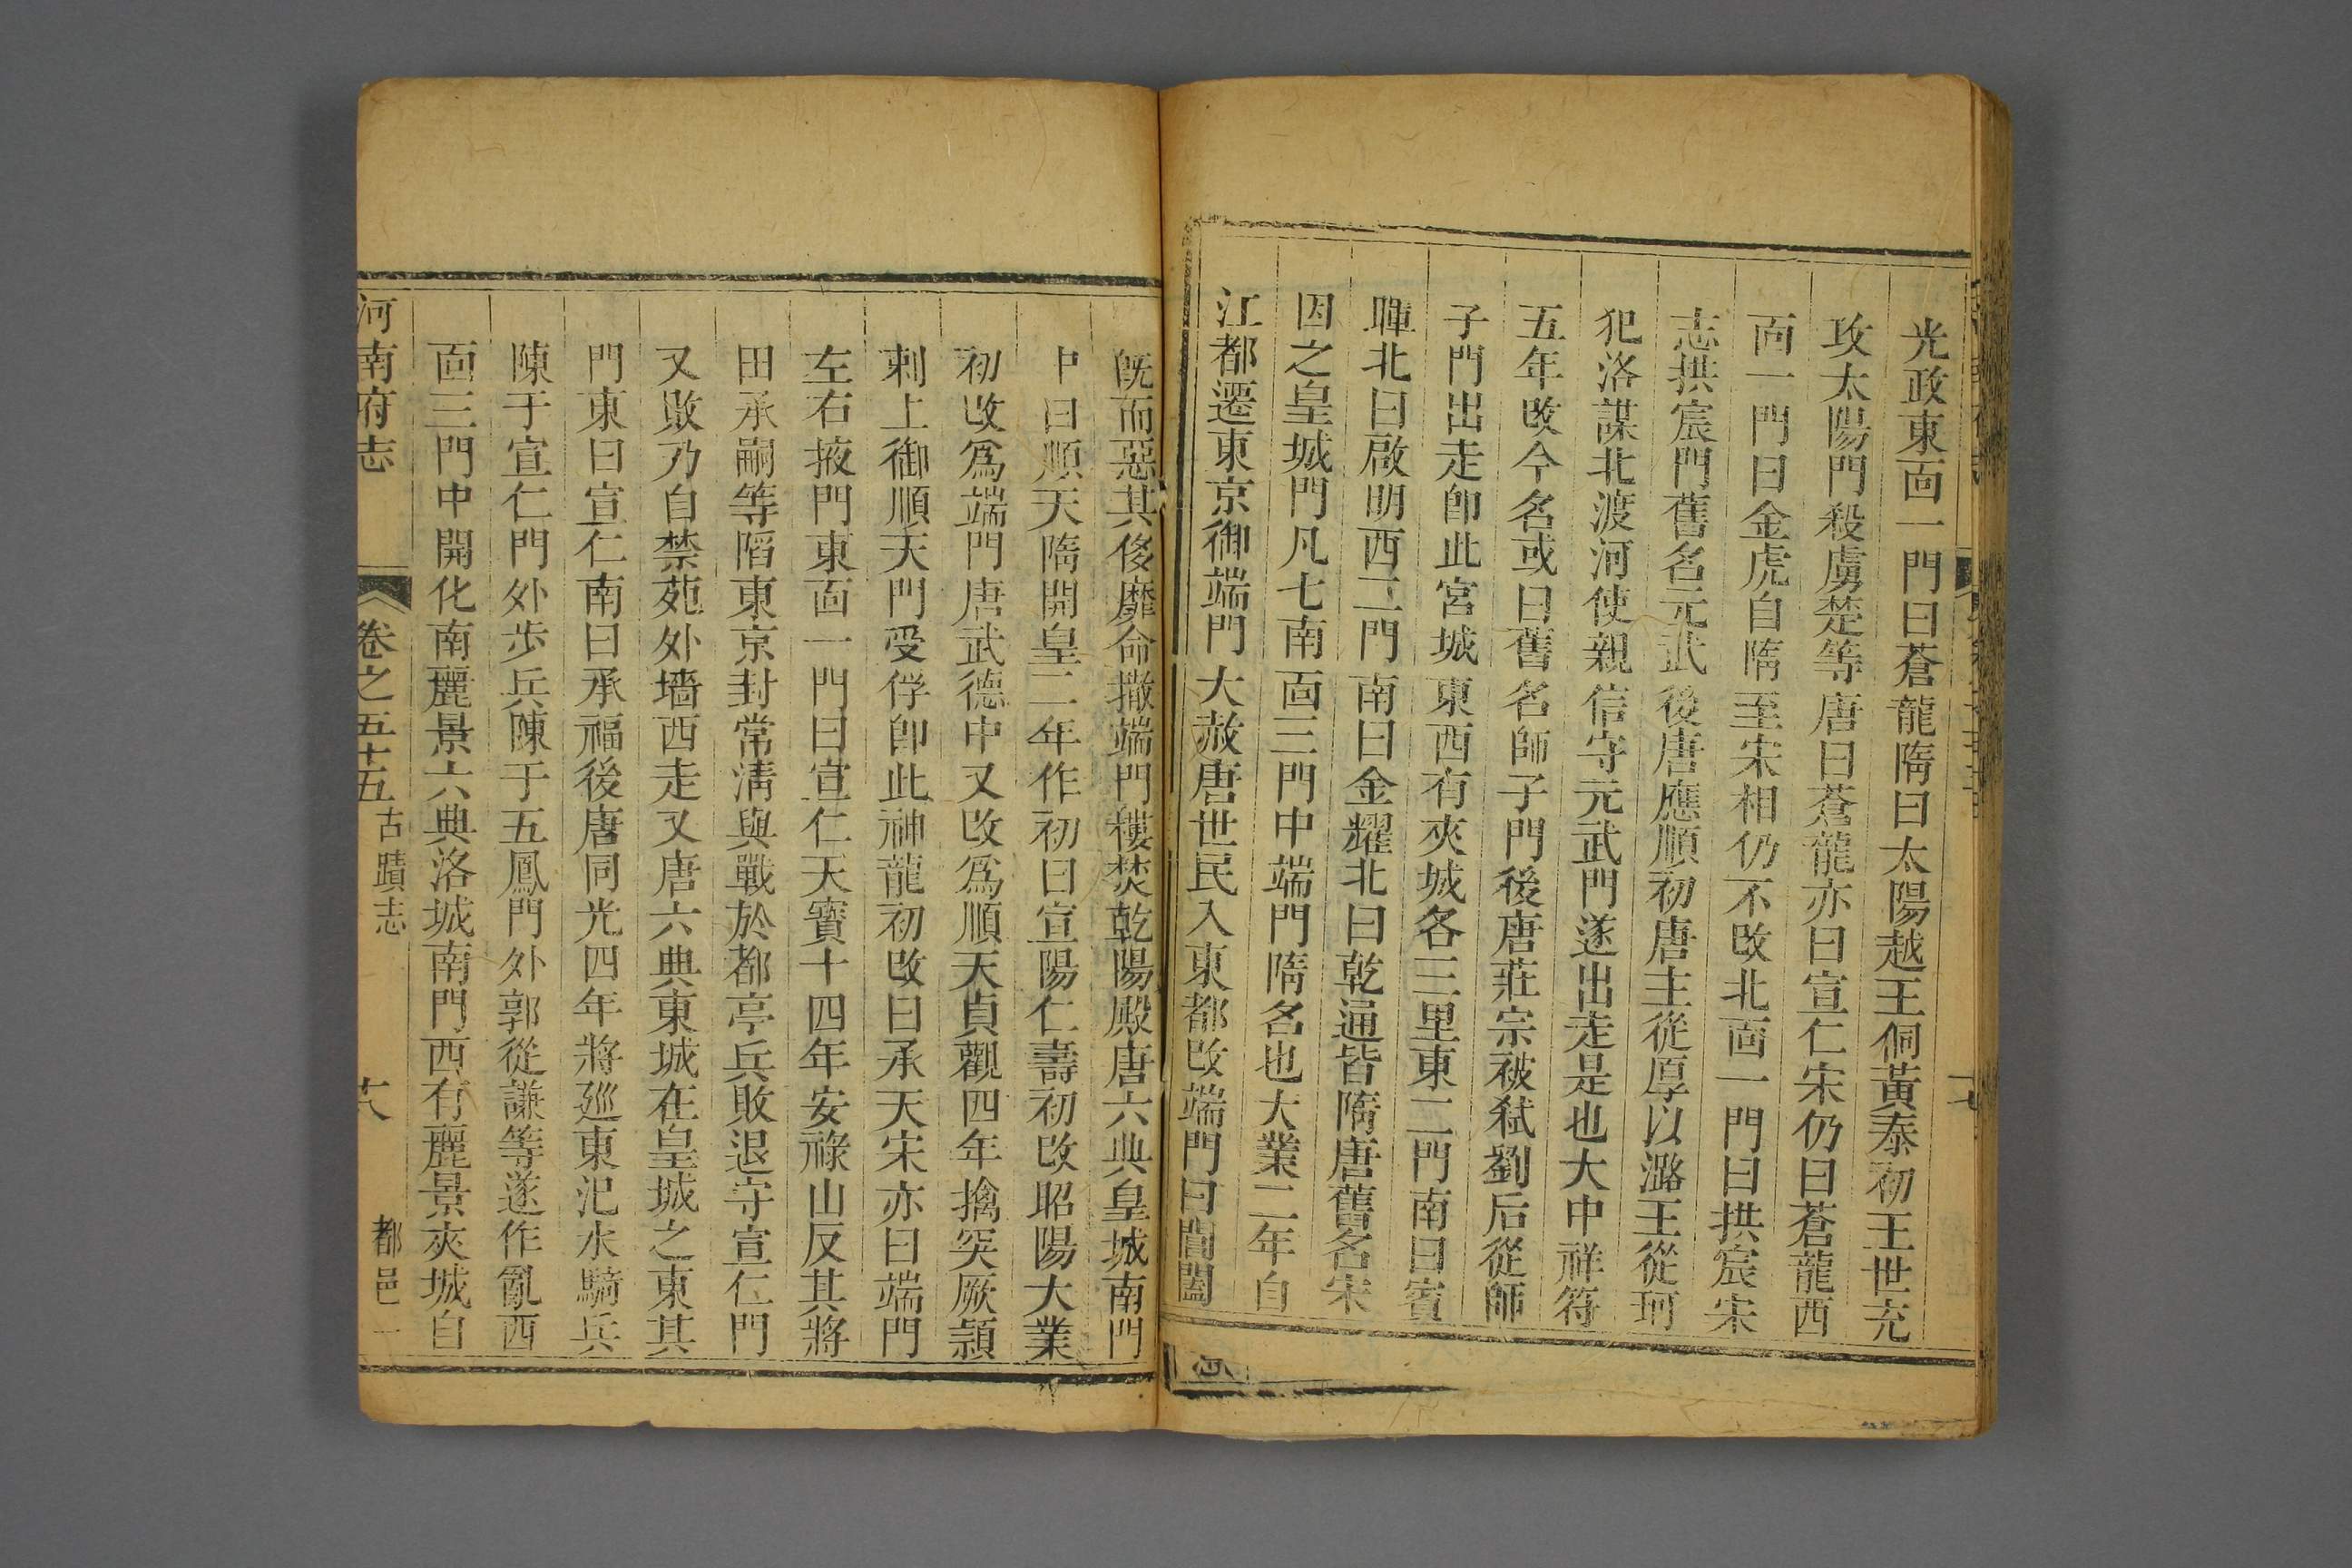 光政東面一門曰蒼龍隋曰太陽越王侗黃泰初王世充
攻太陽門殺虜楚等唐曰蒼龍亦曰宣仁宋仍曰蒼龍西
面一門曰金虎自隋至宋相仍不改北面一門曰拱宸宋
志拱宸門舊名元武後唐應順初唐主從厚以潞王從珂
犯洛謀北渡河使親信守元武門遂出走是也大中祥符
五年改今名或曰舊名師子門後唐莊宗被弒劉后從師
子門出走卽此宮城東西有夾城各三里東二門南曰賓
暉北曰啟明西二門南曰金耀北曰乾通皆隋唐舊名宋
因之皇城門凡七南面三門中端門隋名也大業二年自
江都還東京御端門大赦唐世民入東都改端門曰閶闔
旣而惡其侈靡命撤端門樓焚乾陽殿唐六典皇城南門
中曰順天隋開皇二年作初曰宣陽仁壽初改昭陽大業
初改爲端門唐武德中又改爲順天貞觀四年擒突厥頡
利上御順天門受俘卽此神龍初改曰承天宋亦曰端門
左右掖門東面一門曰宣仁天寶十四年安祿山反其將
田承嗣等䧟東京封常淸與戰於都亭兵敗退守宣仁門
又敗乃自禁苑外墻西走又唐六典東城在皇城之東其
門東曰宣仁南曰承福後唐同光四年將廵東汜水騎兵
陳于宣仁門外步兵陳于五鳳門外郭從謙等遂作亂西
面三門中開化南麗景六典洛城南門西有麗景夾城自
河南府志
卷之五十五
古蹟志
都邑一
十八